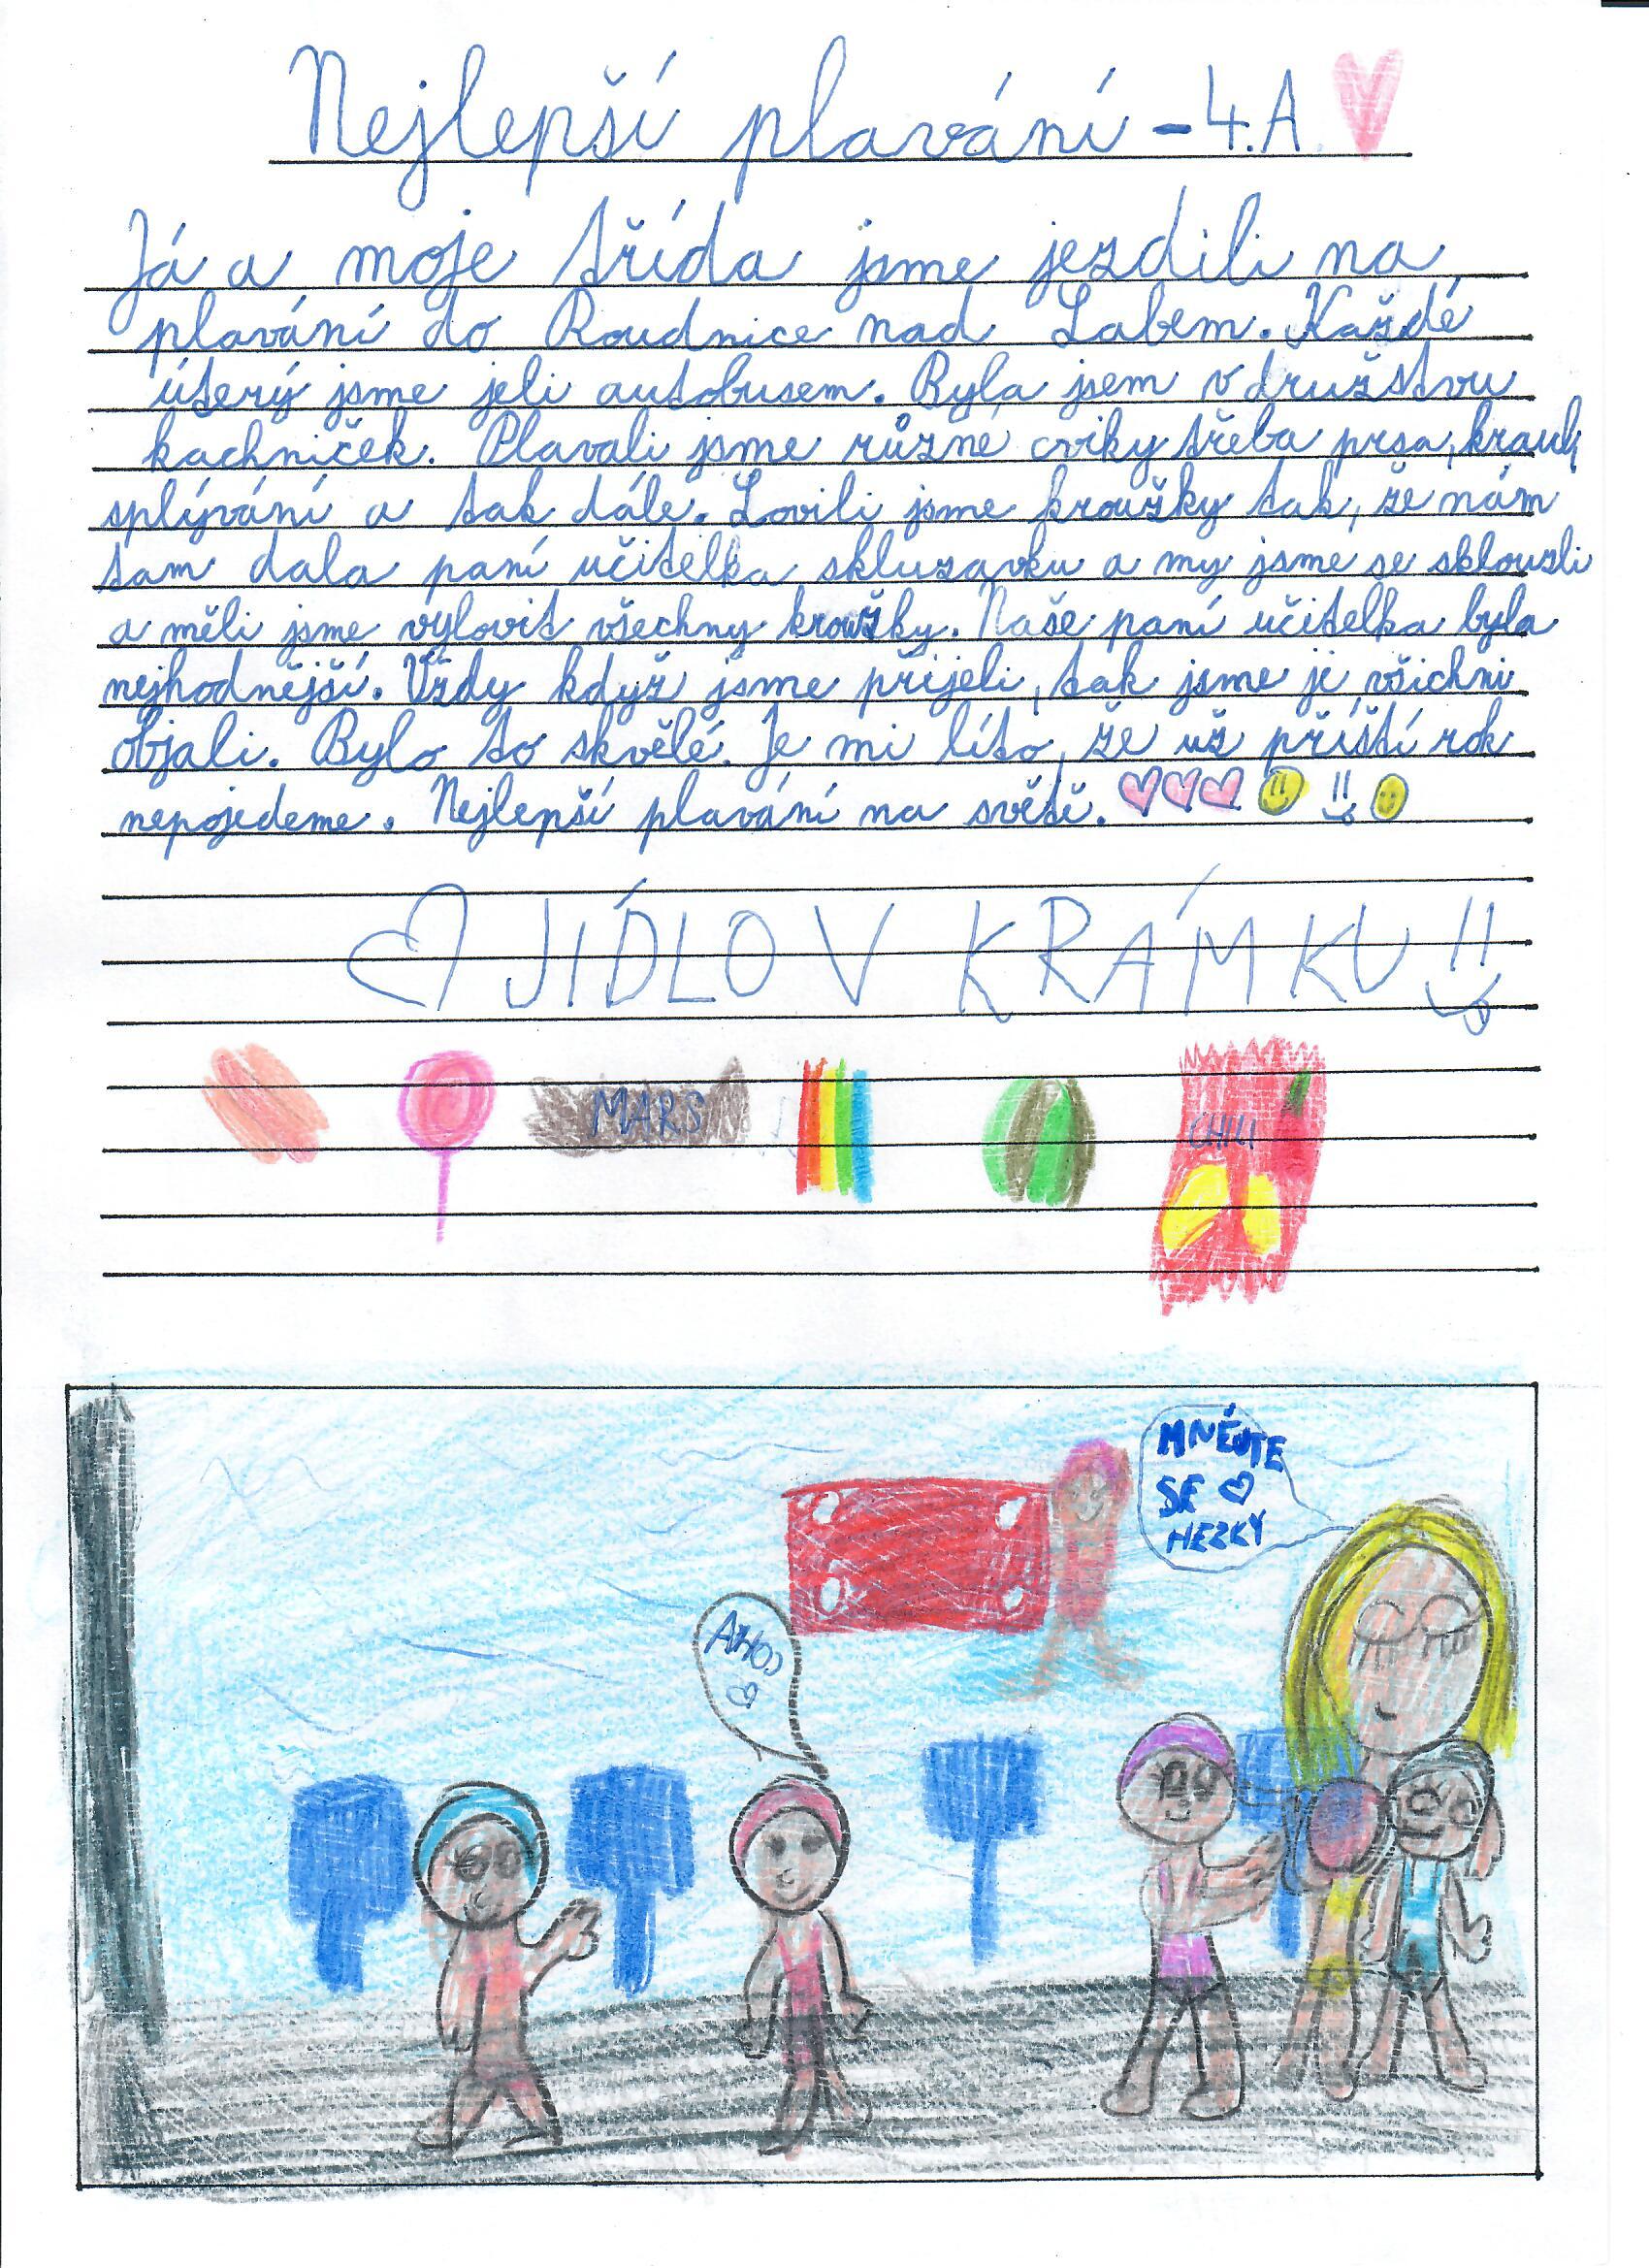 Nejlepší plavání - 4.A
Já a moje třída jsme jezdili na
plavání do Roudnice nad Labem. Každé
úterý jsme jeli autobusem. Byla jsem v družstvu
kachniček. Plavali jsme různé cviky třeba prsa, kraul,
splývání a tak dále. Lovili jsme kroužky tak, že nám
tam dala paní učitelka skluzavku a my jsme se sklouzli
a měli jsme vylovit všechny kroužky. Naše paní učitelka byla
nejhodnější. Vždy když jsme přijeli, tak jsme ji všichni
objali. Bylo to skvělé. Je mi líto, že už příští rok
nepojedeme. Nejlepší plavání na světě.
JÍDLO V KRÁMKU !!
MARS
CHILI
MNĚJTE
SE
HEZKY
AHOJ